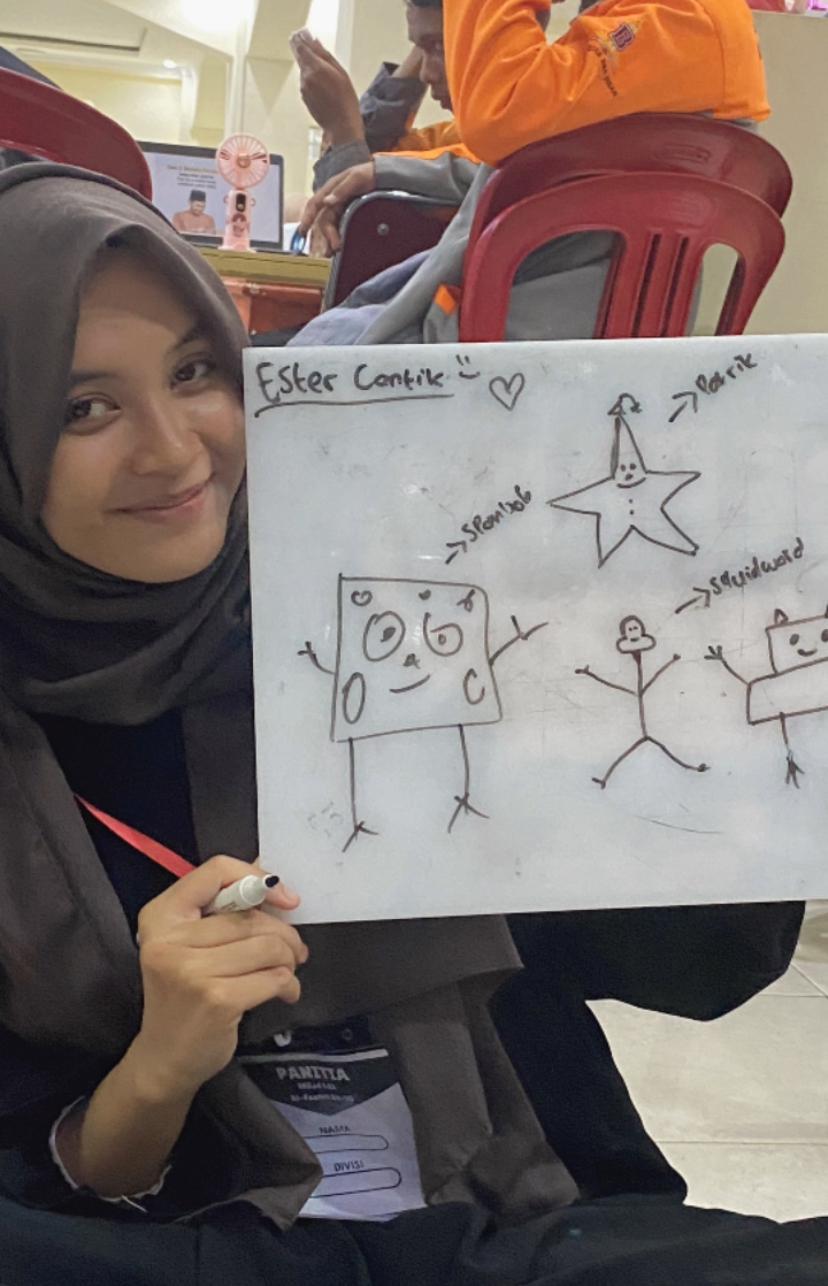 ESter Cantik
Patrik
sponbob
squidword
PANITIA
NAMA
DIVISI